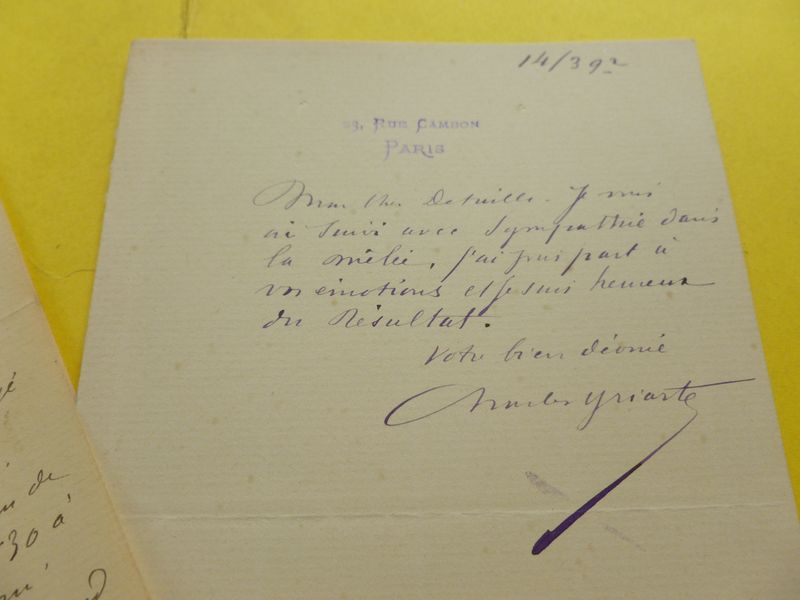 14/392
33, Rue Cambon
Paris
Mon cher Detaille. Je vous
ai suivi avec sympathie dans
la mêlée, j'ai pris part à
vos émotions et je suis heureux
du Résultat.
Votre bien dévoué
Charles Yriarte
de
30 à